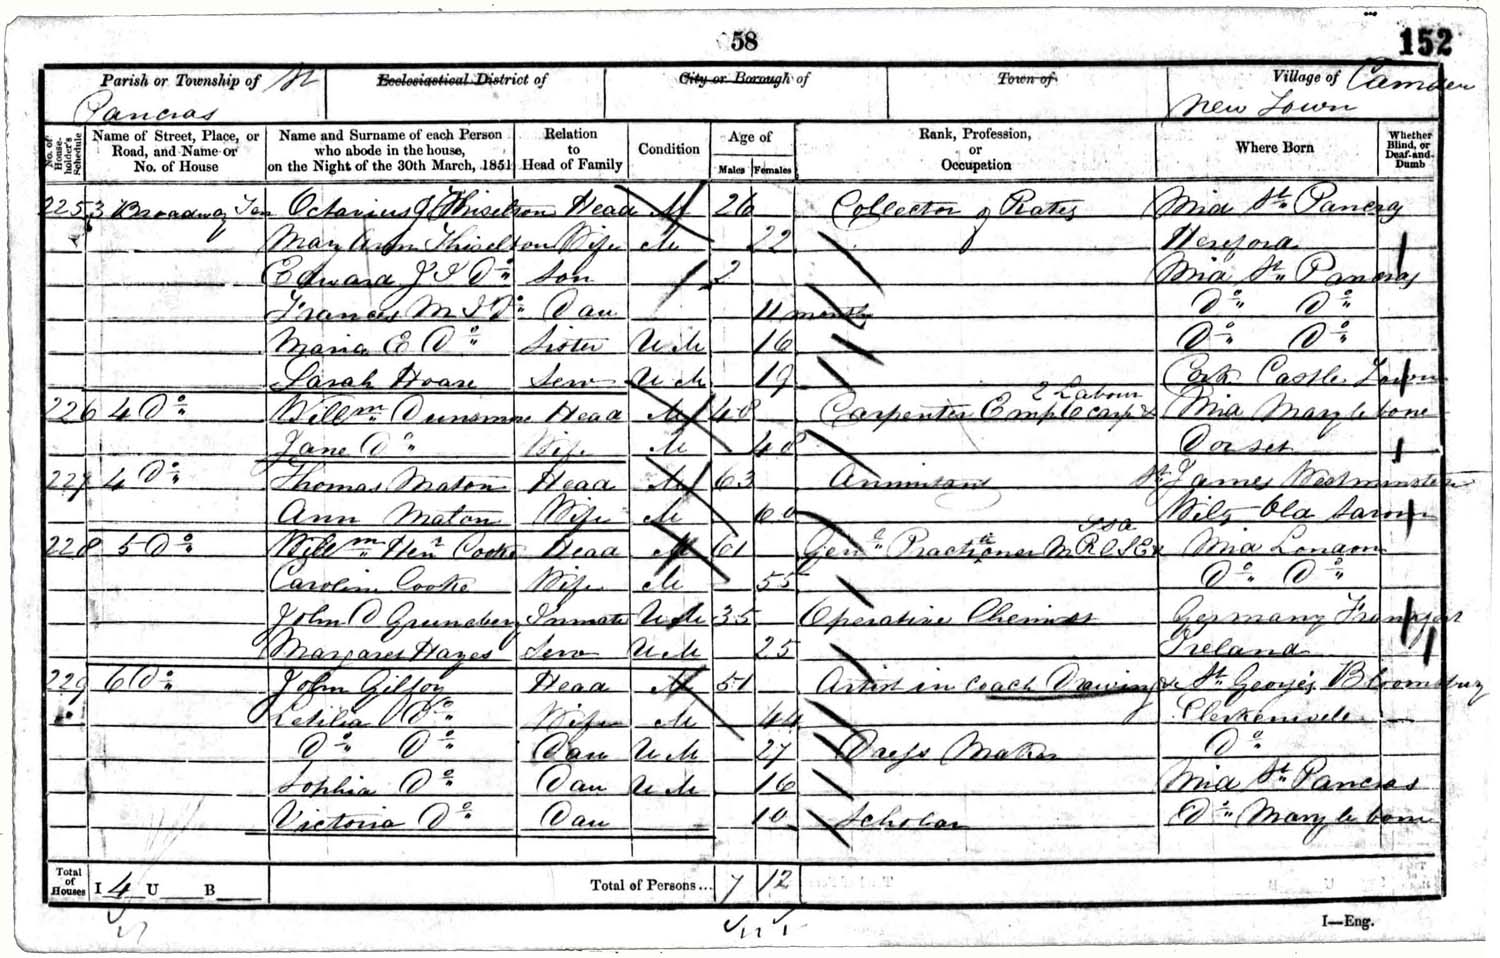 58
152
Parish or Township of St
Pancras
Ecclesiastical District of
City or Borough of
Town of
Village of Camden
New Town
No. of House-holder's Schedule
Name of Street, Place, or Road, and Name or No. of House
Name and Surname of each Person who abode in the house, on the Night of the 30th March, 1851
Relation to Head of Family
Condition
Age of
Males Females
Rank, Profession, or Occupation
Where Born
Whether Blind, or Deaf-and-Dumb
225 3 Broadway Ter Octavius J Thiselton Head M 26 Collector of Rates Mid St Pancras
Mary Ann Thiselton Wife M 22 Hereford
Edward J I Do Son 2 Mid St Pancras
Frances M I Do Dau 11 months Do Do
Maria E Do Sister U M 16 Do Do
Sarah Hoare Serv U M 19 Cork Castle Town
226 4 Do Willm Dunsmore Head M 48 Carpenter Empl 2 Labour Mid Marylebone
Jane Do Wife M 48 Dorset
227 4 Do Thomas Maton Head M 63 Annuitant St James Westminster
Ann Maton Wife M 60 Wilts Old Sarum
228 5 Do Willm Henr Cooke Head M 61 Genl Practitioner M R C S E & LSA Mid London
Caroline Cooke Wife M 55 Do Do
John D Gruneberg Inmate U M 35 Operative Chemist Germany
Margaret Hayes Serv U M 25 Ireland
229 6 Do John Gilfoy Head M 51 Artist in Coach Drawing &c St George's Bloomsbury
Letilia Do Wife M 44 Clerkenwell
Do Do Dau U M 27 Dress Maker Do
Sophia Do Dau U M 16 Mid St Pancras
Victoria Do Dau 10 Scholar Do Marylebone
Total of Houses I 4 U B Total of Persons... 7 12
I—Eng.